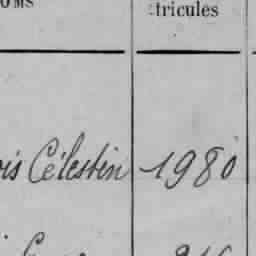 OMS
tricules
ois Célestin 1980